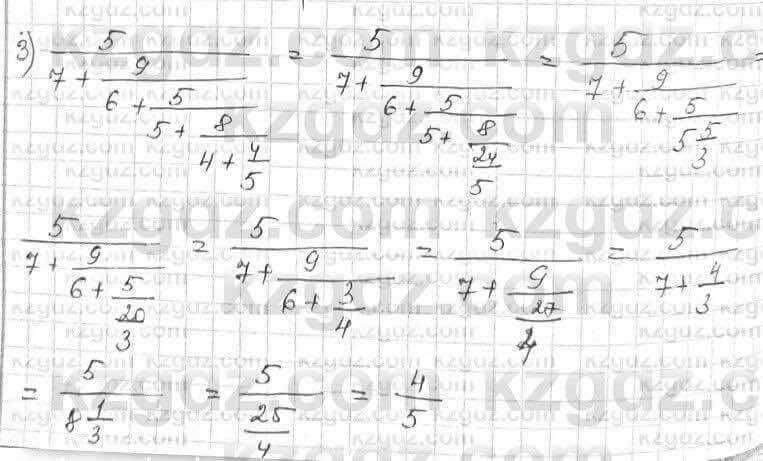 3) \frac{5}{7+\frac{9}{6+\frac{5}{5+\frac{8}{4+\frac{4}{5}}}}} = \frac{5}{7+\frac{9}{6+\frac{5}{5+\frac{8}{\frac{24}{5}}}}} = \frac{5}{7+\frac{9}{6+\frac{5}{5\frac{5}{3}}}} =
\frac{5}{7+\frac{9}{6+\frac{5}{\frac{20}{3}}}} = \frac{5}{7+\frac{9}{6+\frac{3}{4}}} = \frac{5}{7+\frac{9}{\frac{27}{4}}} = \frac{5}{7+\frac{4}{3}}
= \frac{5}{8\frac{1}{3}} = \frac{5}{\frac{25}{4}} = \frac{4}{5}
kzgdz.com